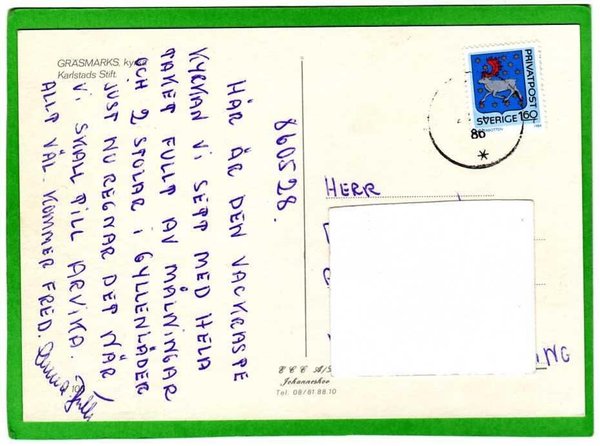 GRÄSMARKS, ky
Karlstads Stift.
860528.
HÄR ÄR DEN VACKRASTE
KYRKAN VI SETT MED HELA
TAKET FULLT AV MÅLNINGAR
OCH 2 STOLAR I GYLLENLÄDER
JUST NU REGNAR DET NÄR
VI SKALL TILL ARVIKA.
ALLT VÄL. KUMMER FRED.
100
PRIVATPOST
SVERIGE 160
86
HERR
NG
C C C A/S
Johanneshov
Tel. 08/81 88 10